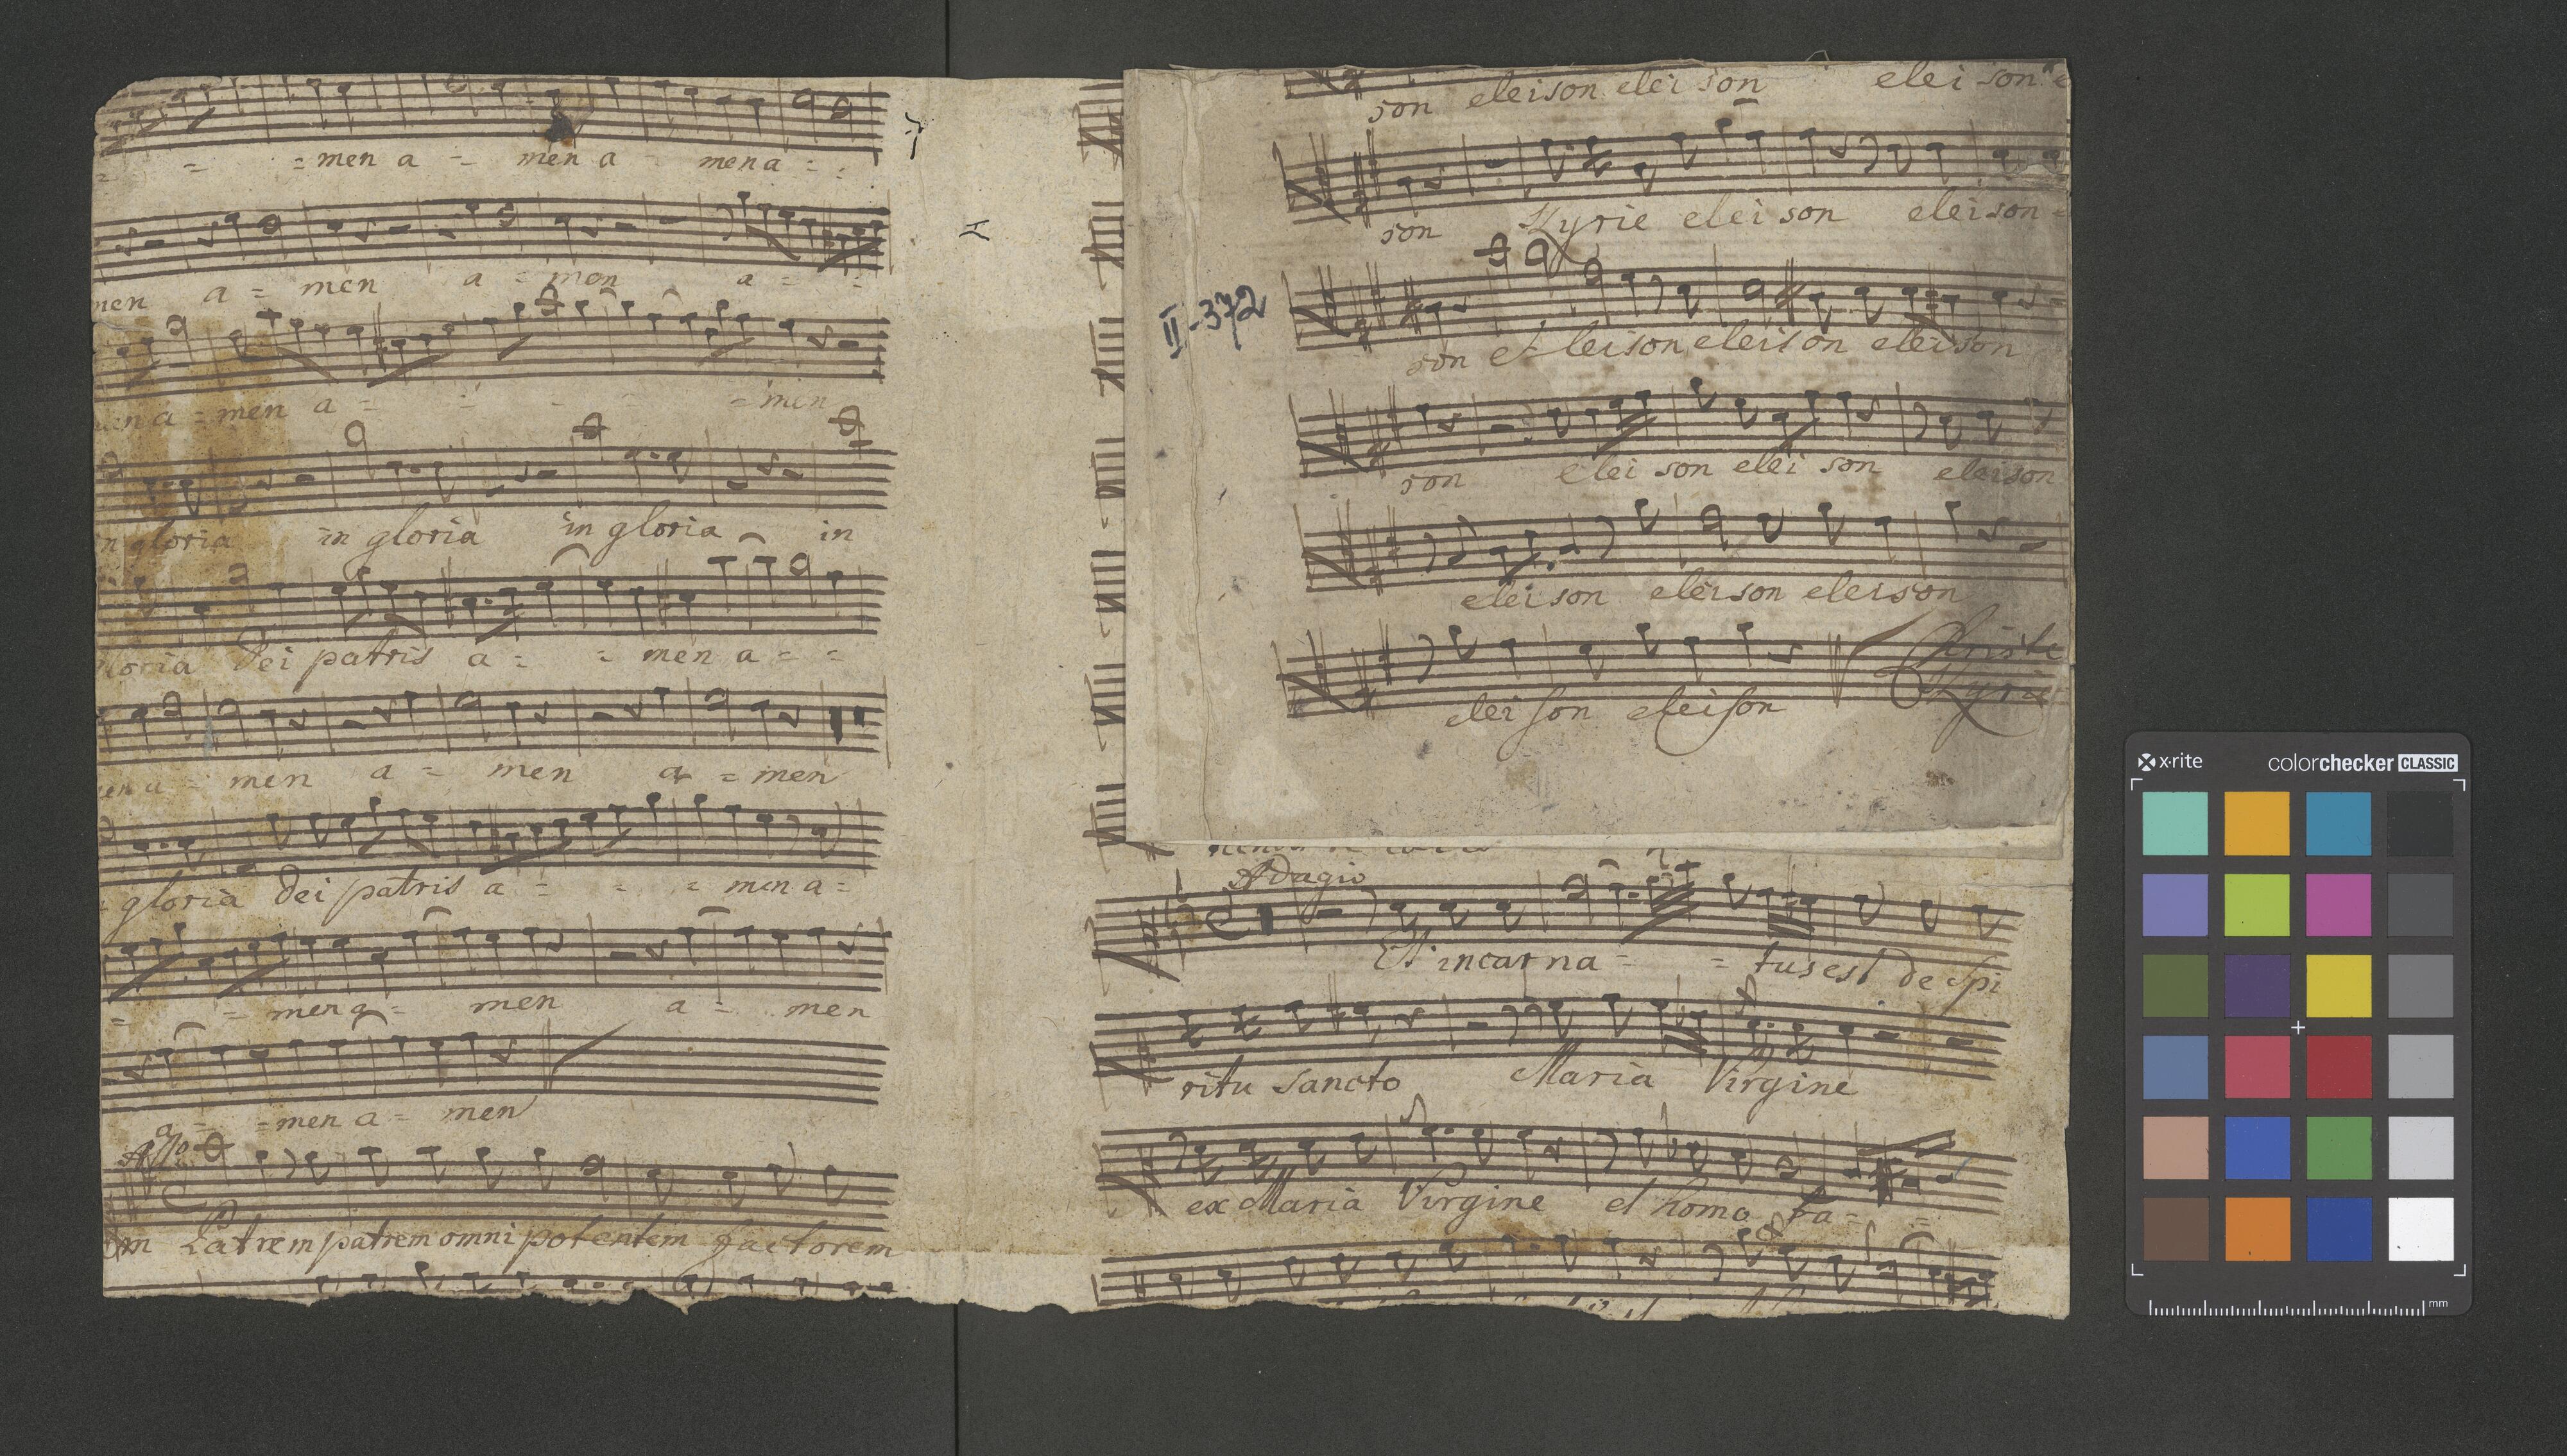 = = = men a = men a = men a = =
men a = men a = men a = =
men a = men a = = = = = men
in gloria in gloria in gloria in
gloria Dei patris a = = men a = =
men a = men a = men a = men
gloria Dei patris a = = = men a =
= = men a = men a = men
a = = men a = men
All:o
Patrem patrem omnipotentem factorem
son eleison eleison eleison
son Kyrie eleison eleison =
II-372
son e = leison eleison eleison
son eleison eleison eleison
eleison eleison eleison
Christe
Kyrie
eleison eleison
Adagio
Et incarna = = tus est de Spi
ritu Sancto Maria Virgine
ex Maria Virgine et homo fa = =
x·rite colorchecker CLASSIC
mm